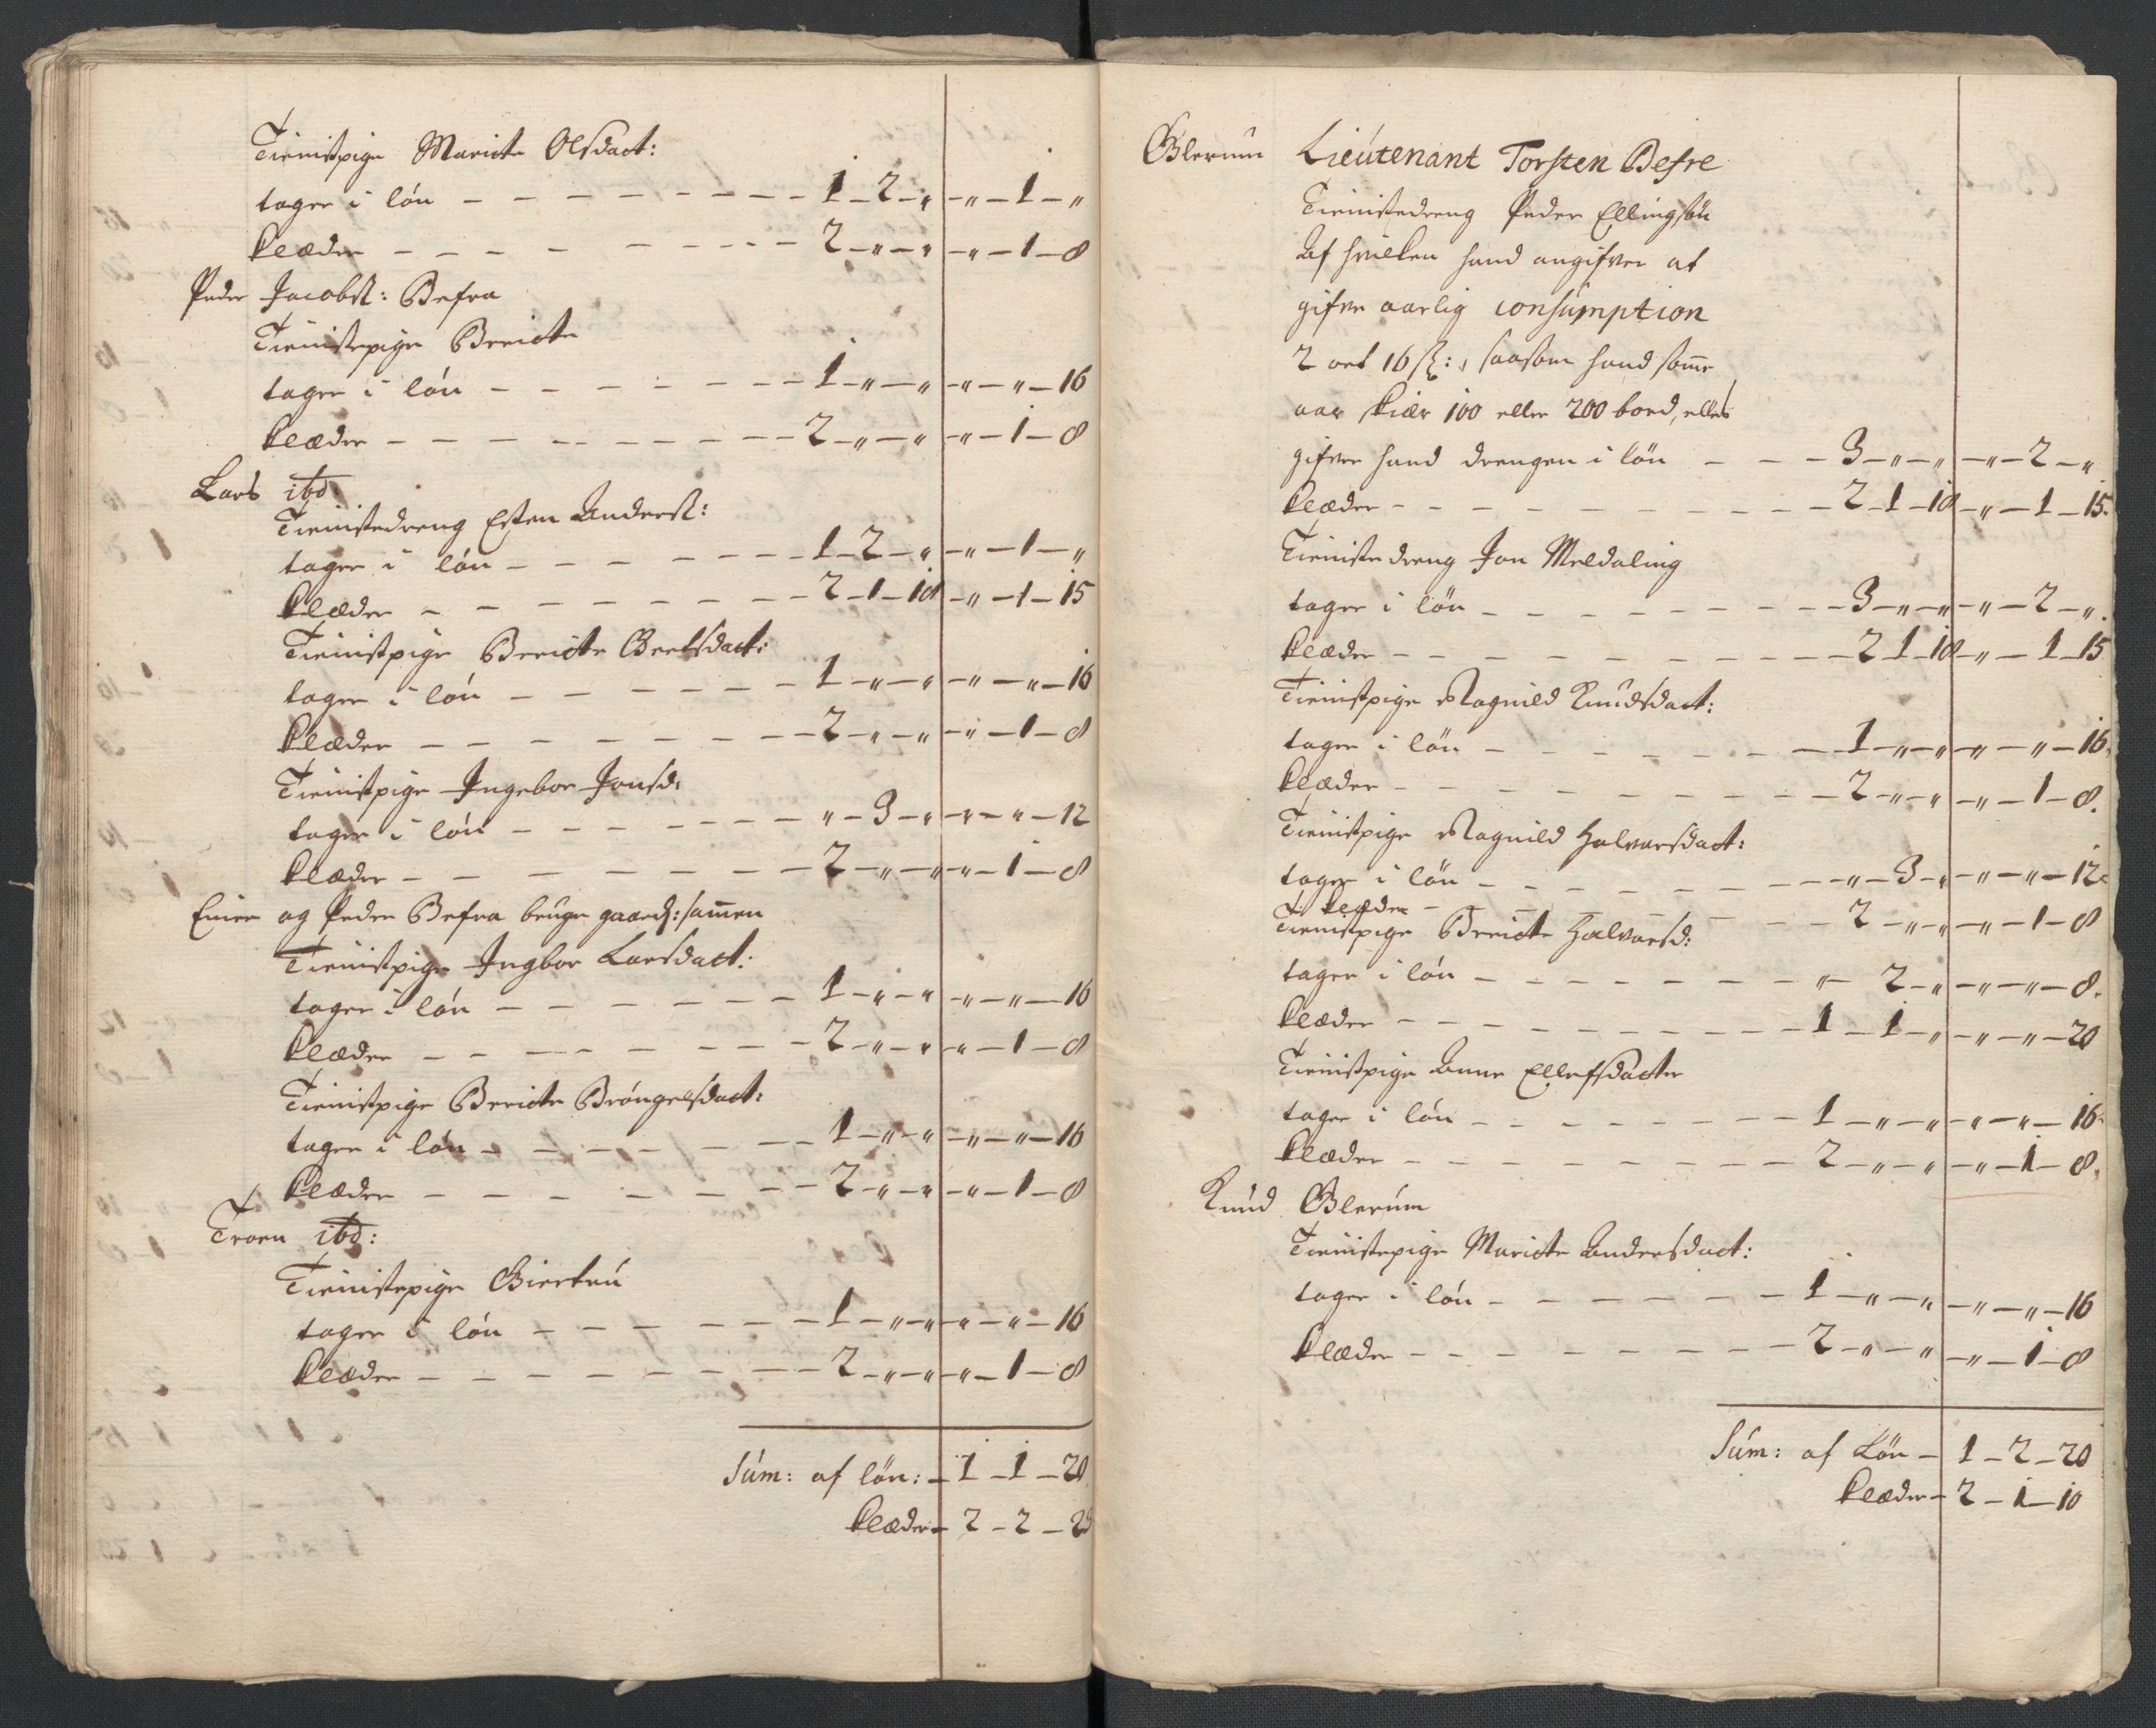 Tienistpige Marichte Olsdact:
tager i lón – – – – – – – – 1 – 2 – " – " – 1 – "
klæder – – – – – – – – 2 – " – " – " – 1 – 8
Peder Jacobsl: Besra
Tienistepige Berichte
tager i lón – – – – – – – 1 – " – " – " – " – 16
klæder – – – – – – – – 2 – " – " – " – 1 – 8
Lars ibd
Tienistedreng Esten Andersl:
tager i lón – – – – – – – 1 – 2 – " – " – 1 – "
klæder – – – – – – – – 2 – 1 – 18 – " – 1 – 15
Tienistpige Berichte Bertsdact:
tager i lón – – – – – – 1 – " – " – " – " – 16
klæder – – – – – – – – 2 – " – " – " – 1 – 8
Tienistpige Ingebor Jonsd:
tager i lón – – – – – – – " – 3 – " – " – " – 12
klæder – – – – – – – 2 – " – " – " – 1 – 8
Einer og Peder Besra bruger gaard: sammen
Tienistpige Ingbor Larsdact:
tager i lón – – – – – – 1 – " – " – " – " – 16
klæder – – – – – – – 2 – " – " – " – 1 – 8
Tienistpige Berichte Bróngelsdact:
tager i lón – – – – – – 1 – " – " – " – " – 16
klæder – – – – – – – 2 – " – " – " – 1 – 8
Troen ibd:
Tienistepige Giertru
tager i lón – – – – – – – 1 – " – " – " – " – 16
klæder – – – – – – – – 2 – " – " – " – 1 – 8
Sum: af lón: – 1 – 1 – 20
klæder – 2 – 2 – 23
Blerum Lieutenant Torsten Besre
Tienistedreng Peder Ellingsön
Af hvilken hand angifver at
gifve aarlig consumption
2 ort 16 ß:, saasom hand somme
aar skiær 100 eller 200 bord, ellers
gifver hand drengen i lön – – – 3 – " – " – " – 2 – "
klæder – – – – – – – – – 2 – 1 – 18 – " – 1 – 15
Tienistedreng Jon Meldaling
tager i lön – – – – – – – – 3 – " – " – " – 2 – "
klæder – – – – – – – – – 2 1 – 18 – " – 1 – 15
Tienistpige Magnild Knudsdact:
tager i lön – – – – – – – 1 – " – " – " – " – 16
klæder – – – – – – – – 2 – " – " – " – 1 – 8
Tienistpige Magnild Halvorsdact:
tager i lön – – – – – – – – " – 3 – " – " – " – 12
klæder – – – – – – – – 2 – " – " – " – 1 – 8
Tienistpige Berichte Halvorsd:
tager i lón – – – – – – – " – 2 – " – " – " – 8
klæder – – – – – – – – – 1 – 1 – " – " – " – 20
Tienistpige Anne Ellefsdacter
tager i lón – – – – – – – 1 – " – " – " – " – 16
klæder – – – – – – – – 2 – " – " – " – 1 – 8
Knud Blerum
Tienistepige Marichte Andersdact:
tager i lón – – – – – – 1 – " – " – " – " – 16
klæder – – – – – – – – 2 – " – " – " – 1 – 8
Sum: af Lön – 1 – 2 – 20
klæder – 2 – 1 – 10